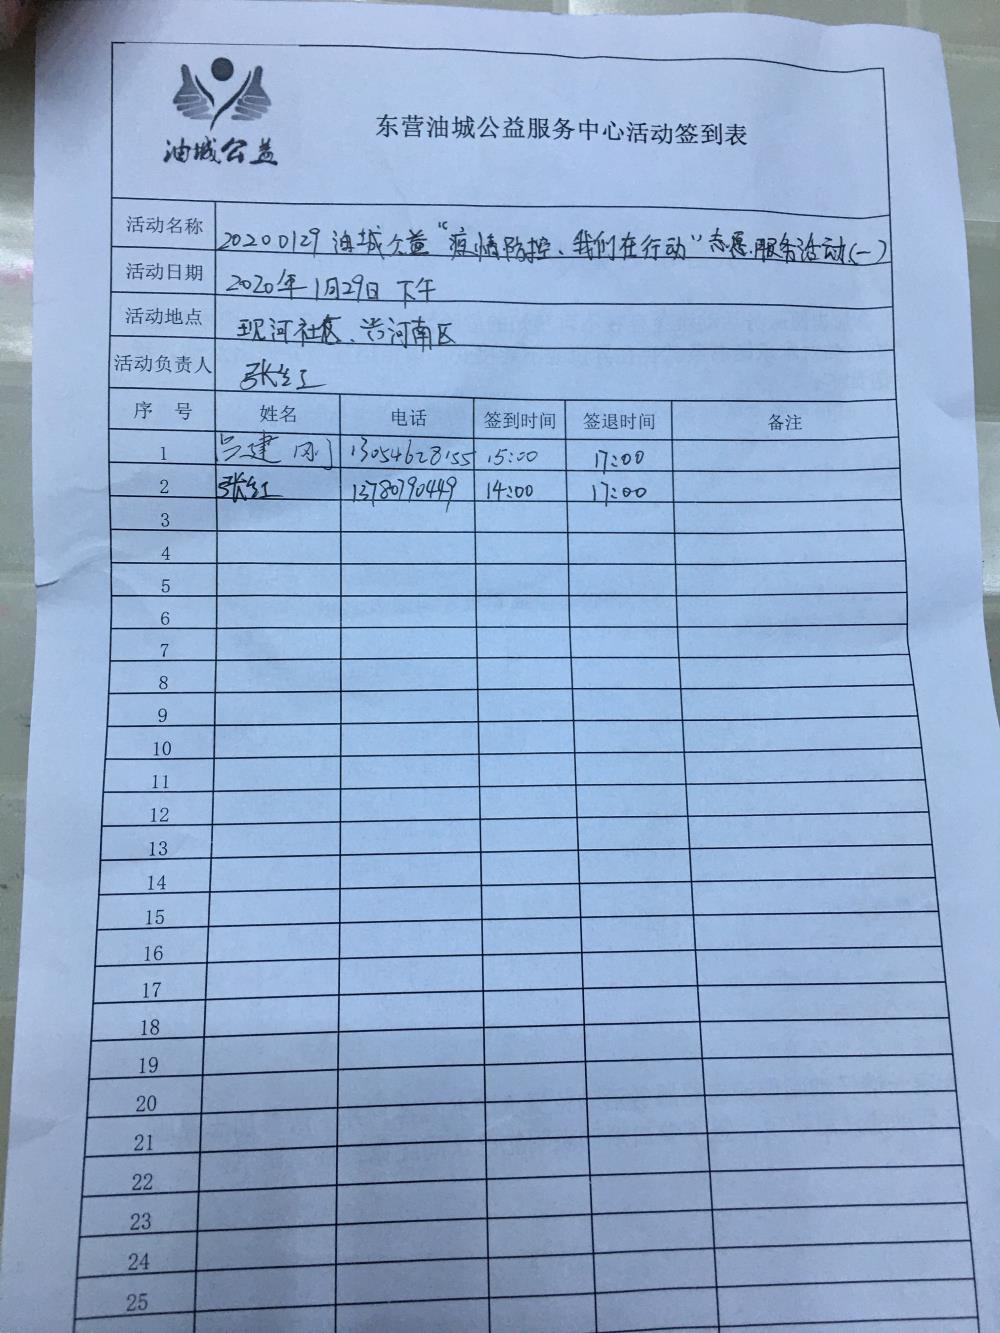 油城公益
东营油城公益服务中心活动签到表
活动名称 20200129 油城公益“疫情防控、我们在行动”志愿服务活动(一)
活动日期 2020年1月29日 下午
活动地点 现河社区、河南区
活动负责人 张红
序号 姓名 电话 签到时间 签退时间 备注
1 吕建刚 13054628155 15:00 17:00
2 张红 13780790449 14:00 17:00
3
4
5
6
7
8
9
10
11
12
13
14
15
16
17
18
19
20
21
22
23
24
25